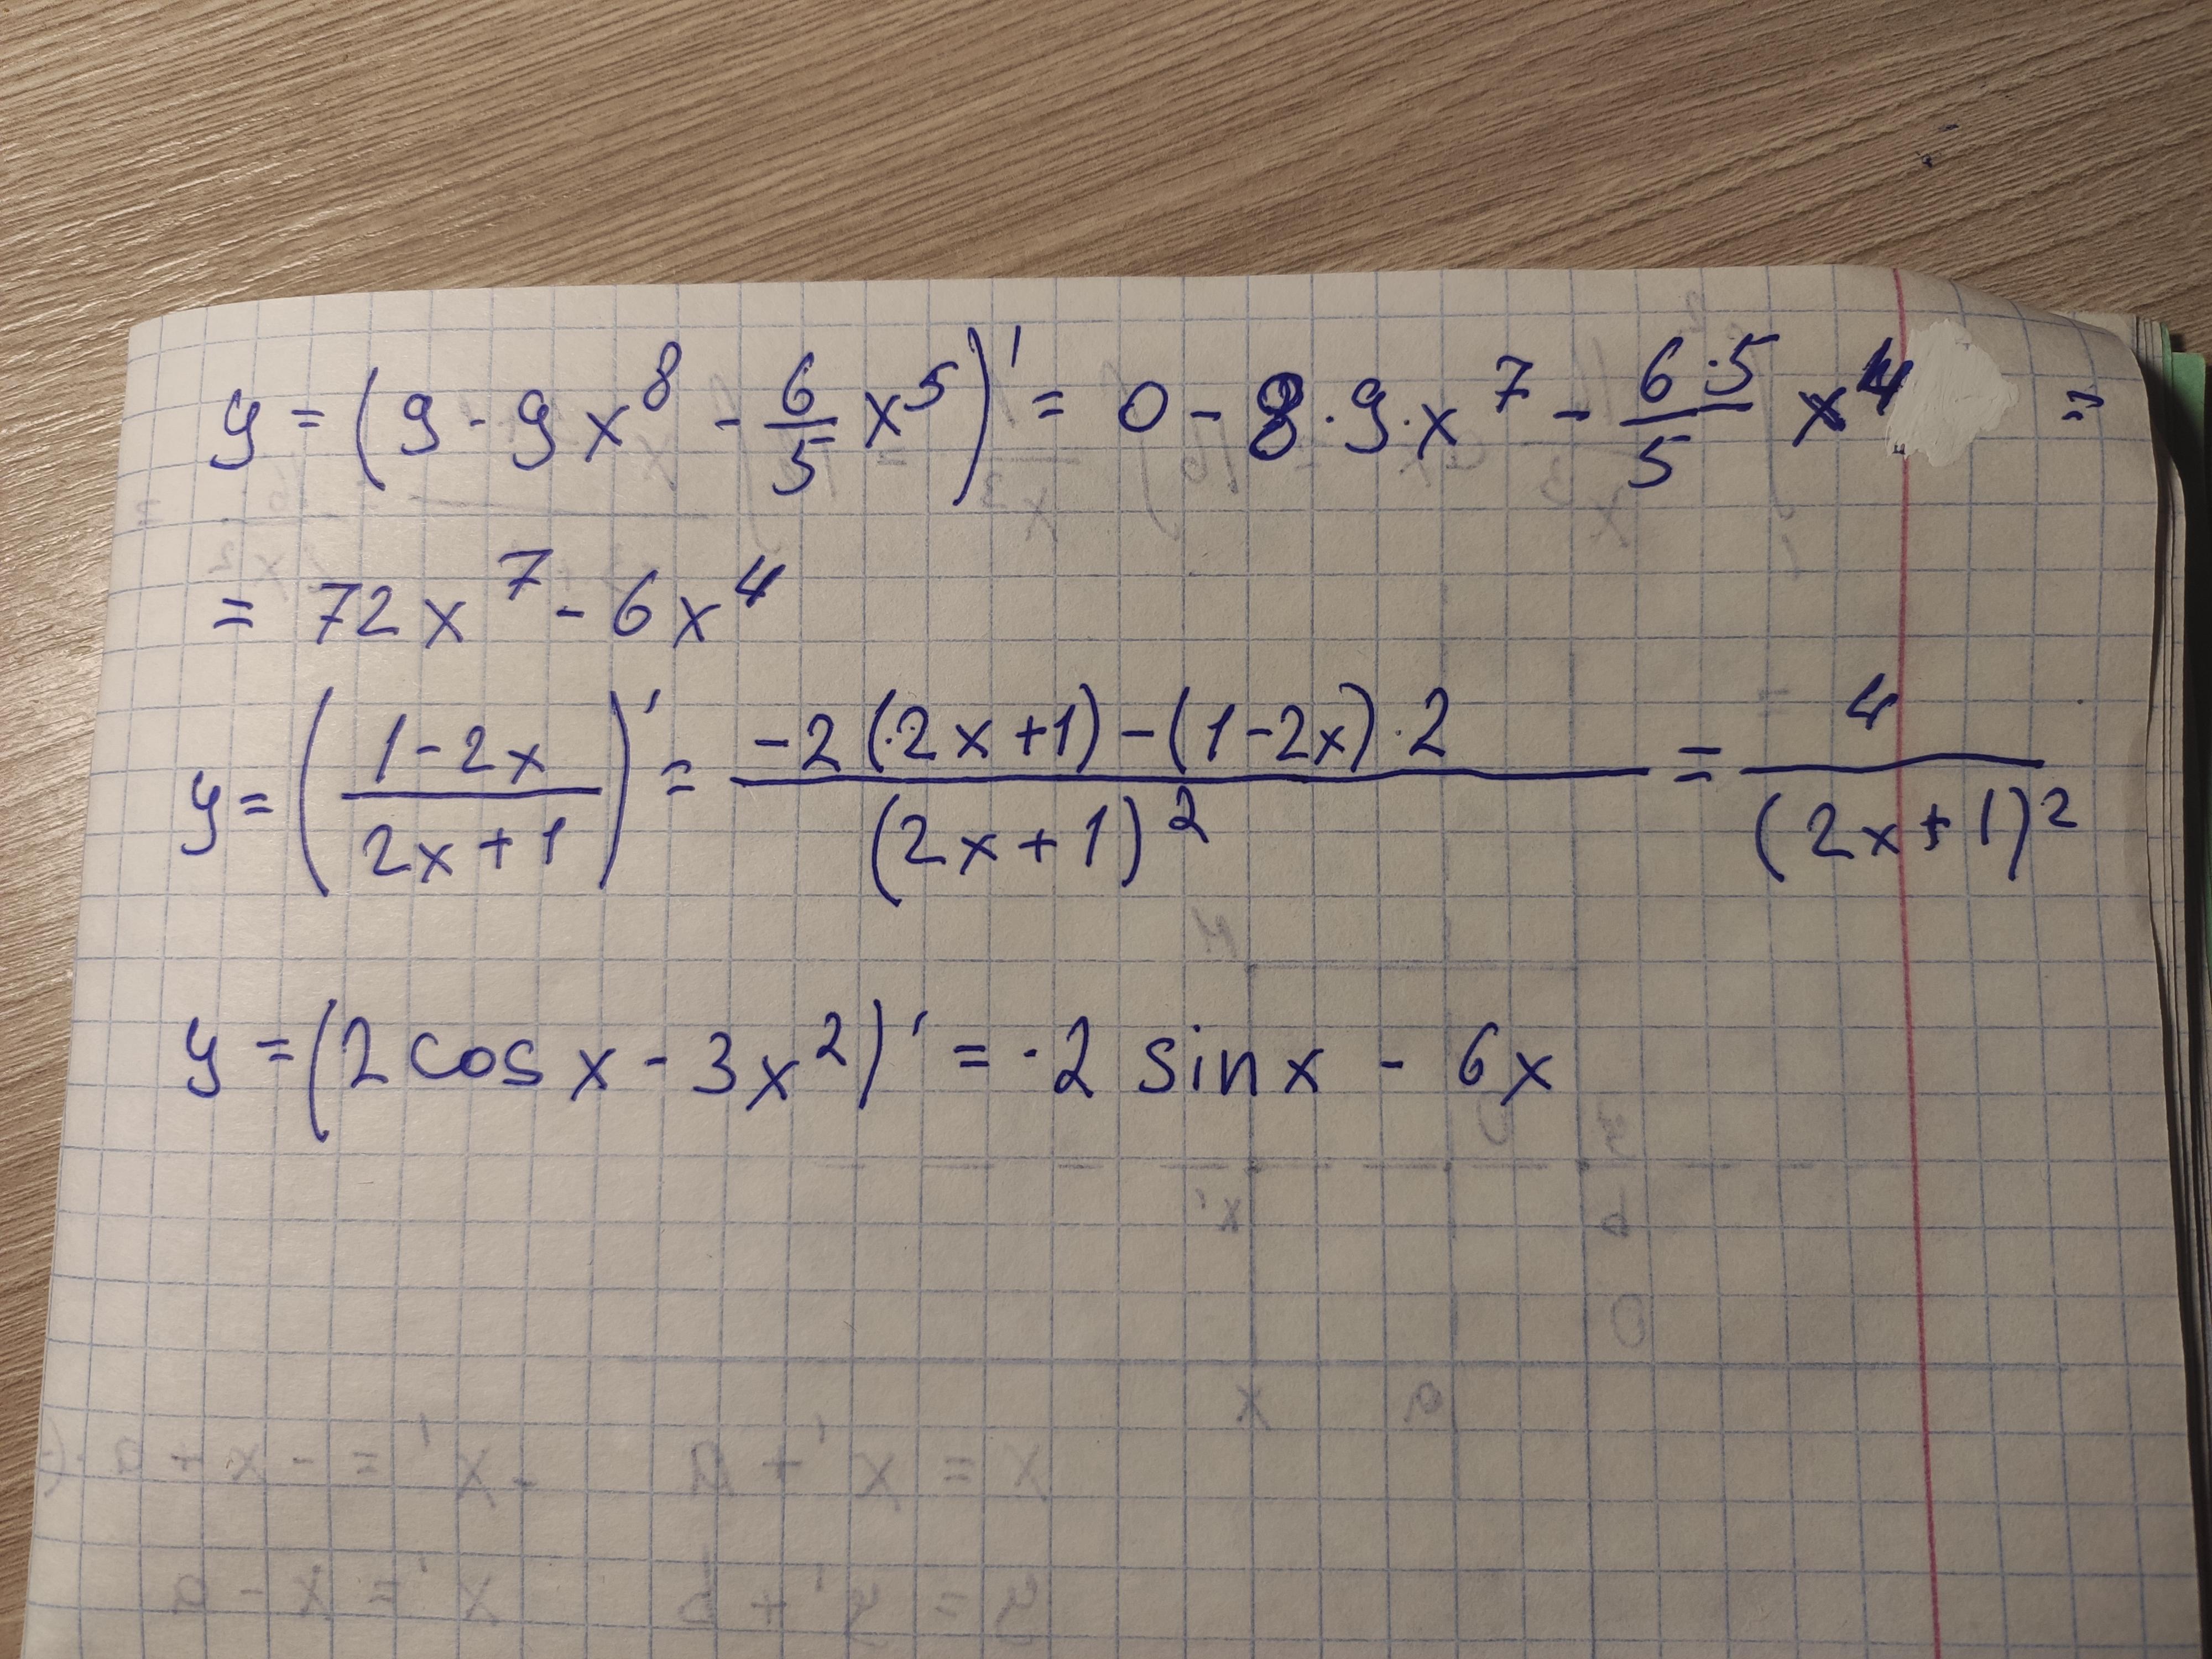 y = (9 - 9x⁸ - 6/5 x⁵)' = 0 - 8·9·x⁷ - 6·5/5 x⁴ =
= 72x⁷ - 6x⁴
y = ((1-2x)/(2x+1))' = (-2(2x+1)-(1-2x)·2)/(2x+1)² = 4/(2x+1)²
y = (2cosx - 3x²)' = -2 sinx - 6x